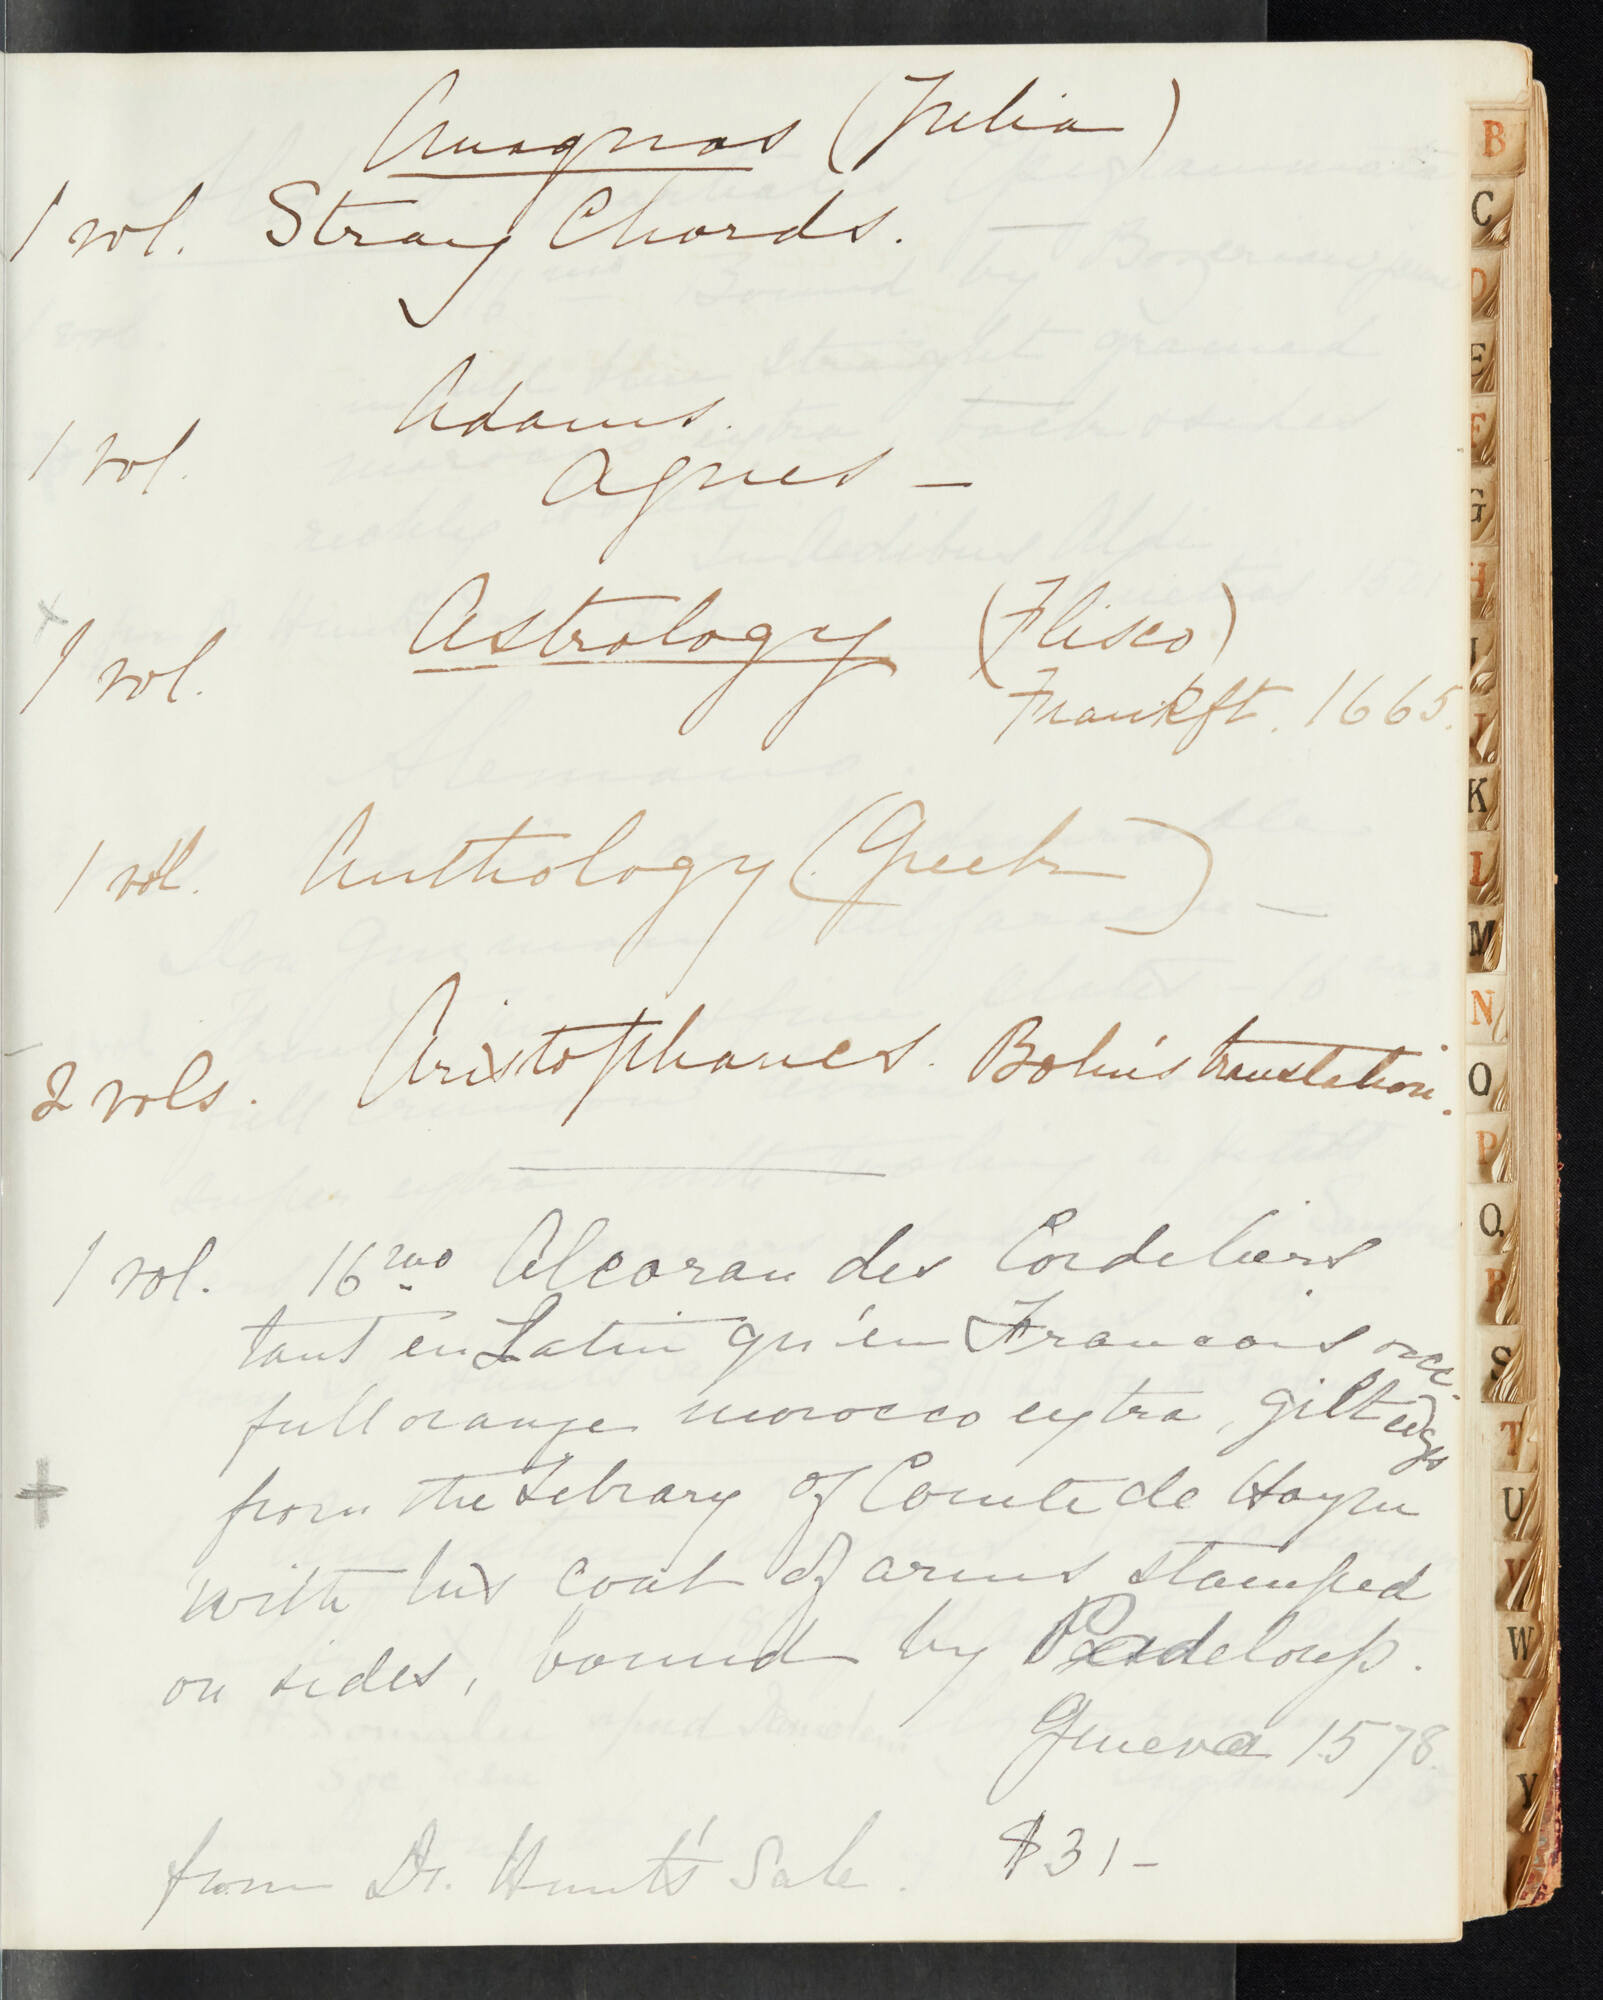 Anagnos (Julia)
1 vol. Stray Chords.
Adams.
1 vol.
Agnes —
Astrology (Flisco)
1 vol.
Frankft. 1665.
1 vol. Anthology (Greek) —
2 vols. Aristophanes. Bohn's translation.
1 vol. 16mo Alcoran des Cordeliers
tant en Latin qu'en Francois
full orange morocco extra, gilt edges
from the Library of Comte de Hoym
with his coat of arms stamped
on sides, bound by Padeloup.
Geneva 1578.
from Dr. Hunt's Sale. $31—
B
C
D
E
F
G
H
I
J
K
L
M
N
O
P
Q
R
S
T
U
V
W
Y